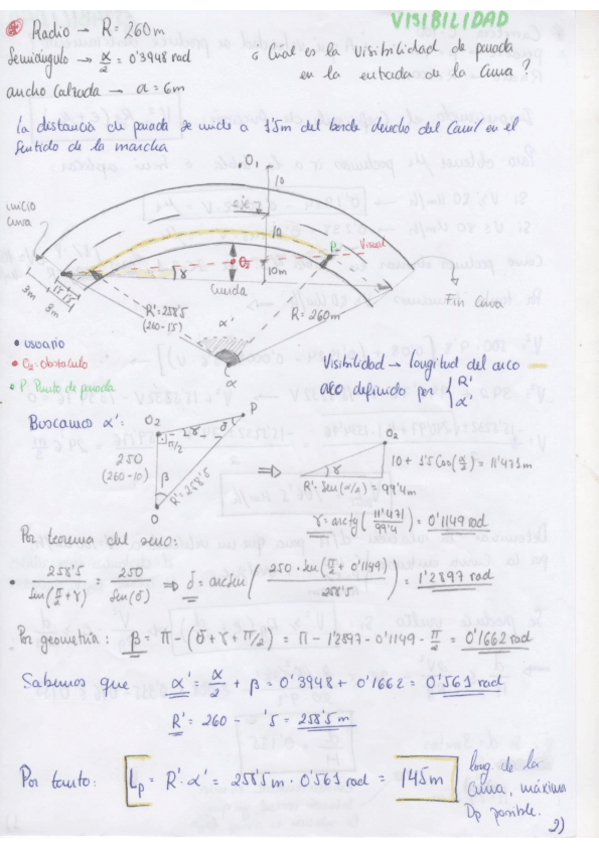 VISIBILIDAD
Radio → R = 260m
Semiángulo → α/2 = 0'3948 rad
ancho calzada → a = 6m
¿Cuál es la visibilidad de parada
en la entrada de la curva?
La distancia de parada se mide a 1'5m del borde derecho del carril en el
sentido de la marcha
O₁
10
inicio
curva
10
P
Visual
O₂
10m
γ
Cuerda
3m
3m
R'=258'5
(260-1'5)
α'
R=260m
Fin curva
α
• usuario
• O₂ Obstáculo
• P. Punto de parada
Visibilidad → longitud del arco
definido por { R'
α'
Buscamos α':
O₂
P
γ
δ
π/2
250
(260-10)
β
R'=258'5
O
⇒
O₂
γ
10 + 1'5 cos(α/2) = 11'471m
R'·sen(α/2) = 99'4m
γ = arctg(11'471/99'4) = 0'1149 rad
Por teorema del seno:
• 258'5/sen(π/2+γ) = 250/sen(δ) ⇒ δ = arcsen(250·sen(π/2+0'1149)/258'5) = 1'2897 rad
Por geometría: β = π-(δ+γ+π/2) = π-1'2897-0'1149-π/2 = 0'1662 rad
Sabemos que α' = α/2 + β = 0'3948 + 0'1662 = 0'561 rad
R' = 260 - '5 = 258'5m
Por tanto: Lp = R'·α' = 258'5m · 0'561 rad = 145m
long. de la
curva, máxima
Dp posible.
2)